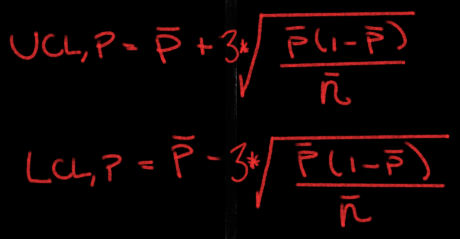 UCL,P = p̄ + 3*√(p̄(1-p̄)/n̄)
LCL,P = p̄ - 3*√(p̄(1-p̄)/n̄)